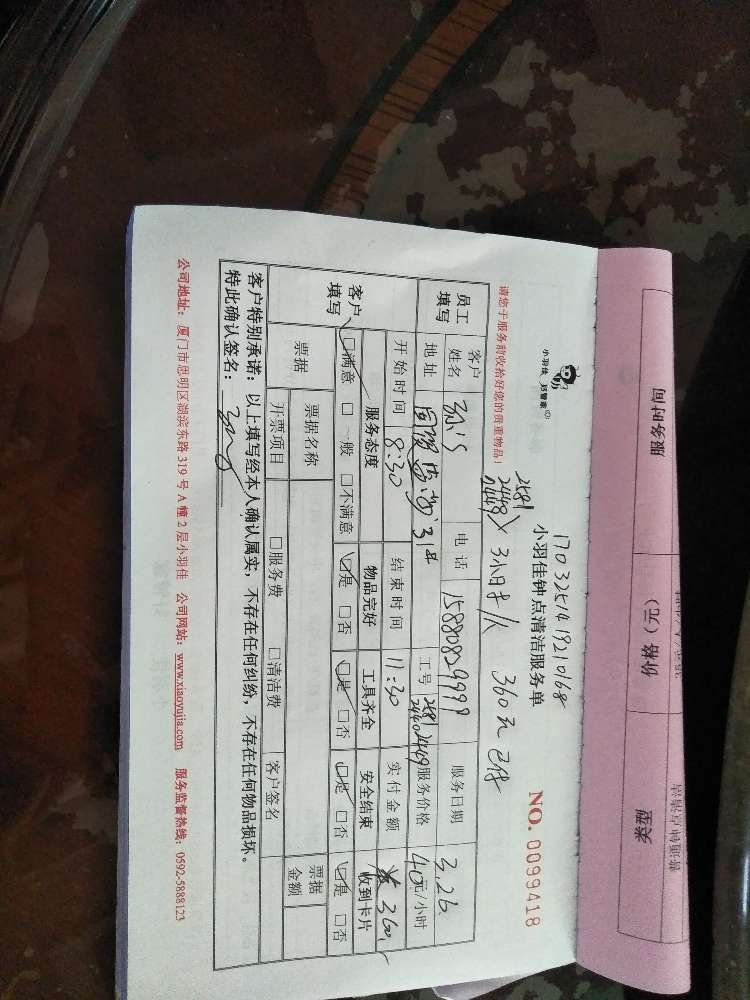 小羽佳 好管家
1703251419210168
小羽佳钟点清洁服务单
NO. 0099418
请您于服务前收拾好您的贵重物品！
2581
2449
3小时/人 360元 已付
员工填写
客户姓名
电话 15880829999
服务日期 3.26
地址
工号 2581 2449
服务价格 40元/小时
开始时间 8:30
结束时间 11:30
实付金额 360
客户填写
服务态度 物品完好 工具齐全 安全结束 收到卡片
□满意 □一般 □不满意 □是 □否 □是 □否 □是 □否 □是 □否
票据
票据名称
票据金额
开票项目 □服务费 □清洁费 客户签名
客户特别承诺：以上填写经本人确认属实，不存在任何纠纷，不存在任何物品损坏。
特此确认签名：
公司地址：厦门市思明区湖滨东路 319 号 A 幢 2 层小羽佳 公司网站：www.xiaoyujia.com 服务监督热线：0592-5888123
服务时间 价格（元） 类型